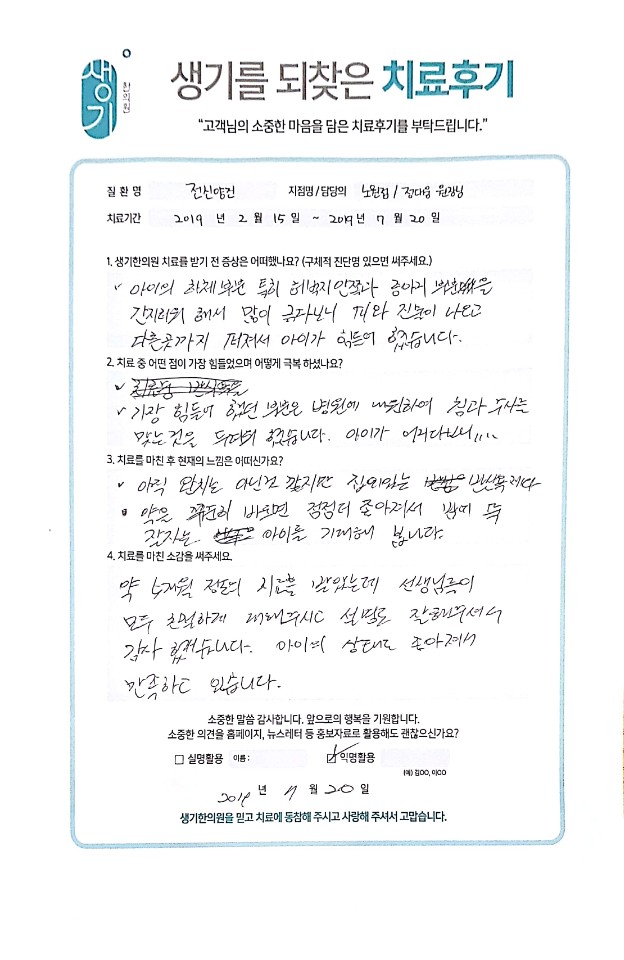 생기
한의원
생기를 되찾은 치료후기
"고객님의 소중한 마음을 담은 치료후기를 부탁드립니다."
질 환 명 전신양건 지점명/담당의 노원점 / 정대웅 원장님
치료기간 2019 년 2 월 15 일 ~ 2019 년 7 월 20 일
1. 생기한의원 치료를 받기 전 증상은 어떠했나요? (구체적 진단명 있으면 써주세요.)
아이의 하체부분 특히 허벅지안쪽과 종아리 부분을
간지러워 해서 많이 긁다보니 피와 진물이 나오고
다른곳까지 퍼져서 아이가 힘들어 했습니다.
2. 치료 중 어떤 점이 가장 힘들었으며 어떻게 극복 하셨나요?
가장 힘들어 했던 부분은 병원에 내원하여 침과 주사를
맞는것을 두려워 했습니다. 아이가 어리다보니....
3. 치료를 마친 후 현재의 느낌은 어떠신가요?
아직 완치는 아닌것 같지만 집에있는
약을 꾸준히 바르면 점점더 좋아져서 밤에 푹
잘자는 아이를 기대해 봅니다.
4. 치료를 마친 소감을 써주세요.
약 5개월 정도의 치료를 받았는데 선생님들이
모두 친절하게 대해주시고 설명도 잘해주셔서
감사 했습니다. 아이의 상태도 좋아져서
만족하고 있습니다.
소중한 말씀 감사합니다. 앞으로의 행복을 기원합니다.
소중한 의견을 홈페이지, 뉴스레터 등 홍보자료로 활용해도 괜찮으신가요?
□ 실명활용 이름 : ☑ 익명활용
(예) 김OO, 이OO
2019 년 7 월 20 일
생기한의원을 믿고 치료에 동참해 주시고 사랑해 주셔서 고맙습니다.